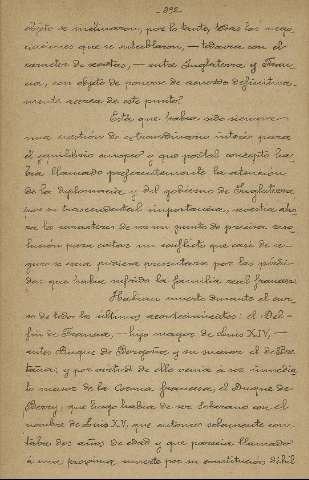 - 292 -
objeto se inclinaron, por lo tanto, todas las nego-
ciaciones que se entablaron, — todavia con el
caracter de secretas, — entre Inglaterra y Fran-
cia, con objeto de ponerse de acuerdo definitiva-
mente acerca de este punto.
Esta que habia sido siempre
una cuestión de extraordinario interés para
el equilibrio europeo y que por tal concepto ha-
bia llamado preferentemente la atencion
de la diplomacia y del gobierno de Inglaterra
por su trascendental importancia, revestia aho-
ra los caracteres de un punto de precisa reso-
lucion para evitar un conflicto que casi de se-
guro se veia pudiera presentarse por las perdi-
das que habia sufrido la familia real francesa.
Habian muerto durante el cur-
so de todos los últimos acontecimientos: el Del-
fin de Francia, — hijo mayor de Luis XIV, —
antes Duque de Borgoña y su sucesor el de Bre-
taña; y por virtud de ello venia á ser inmedia-
to sucesor de la Corona francesa, el Duque de
Berry, que luego habia de ser Soberano con el
nombre de Luis XV, que entonces solamente con-
taba dos años de edad y que parecia llamado
á una proxima muerte por su constitución débil